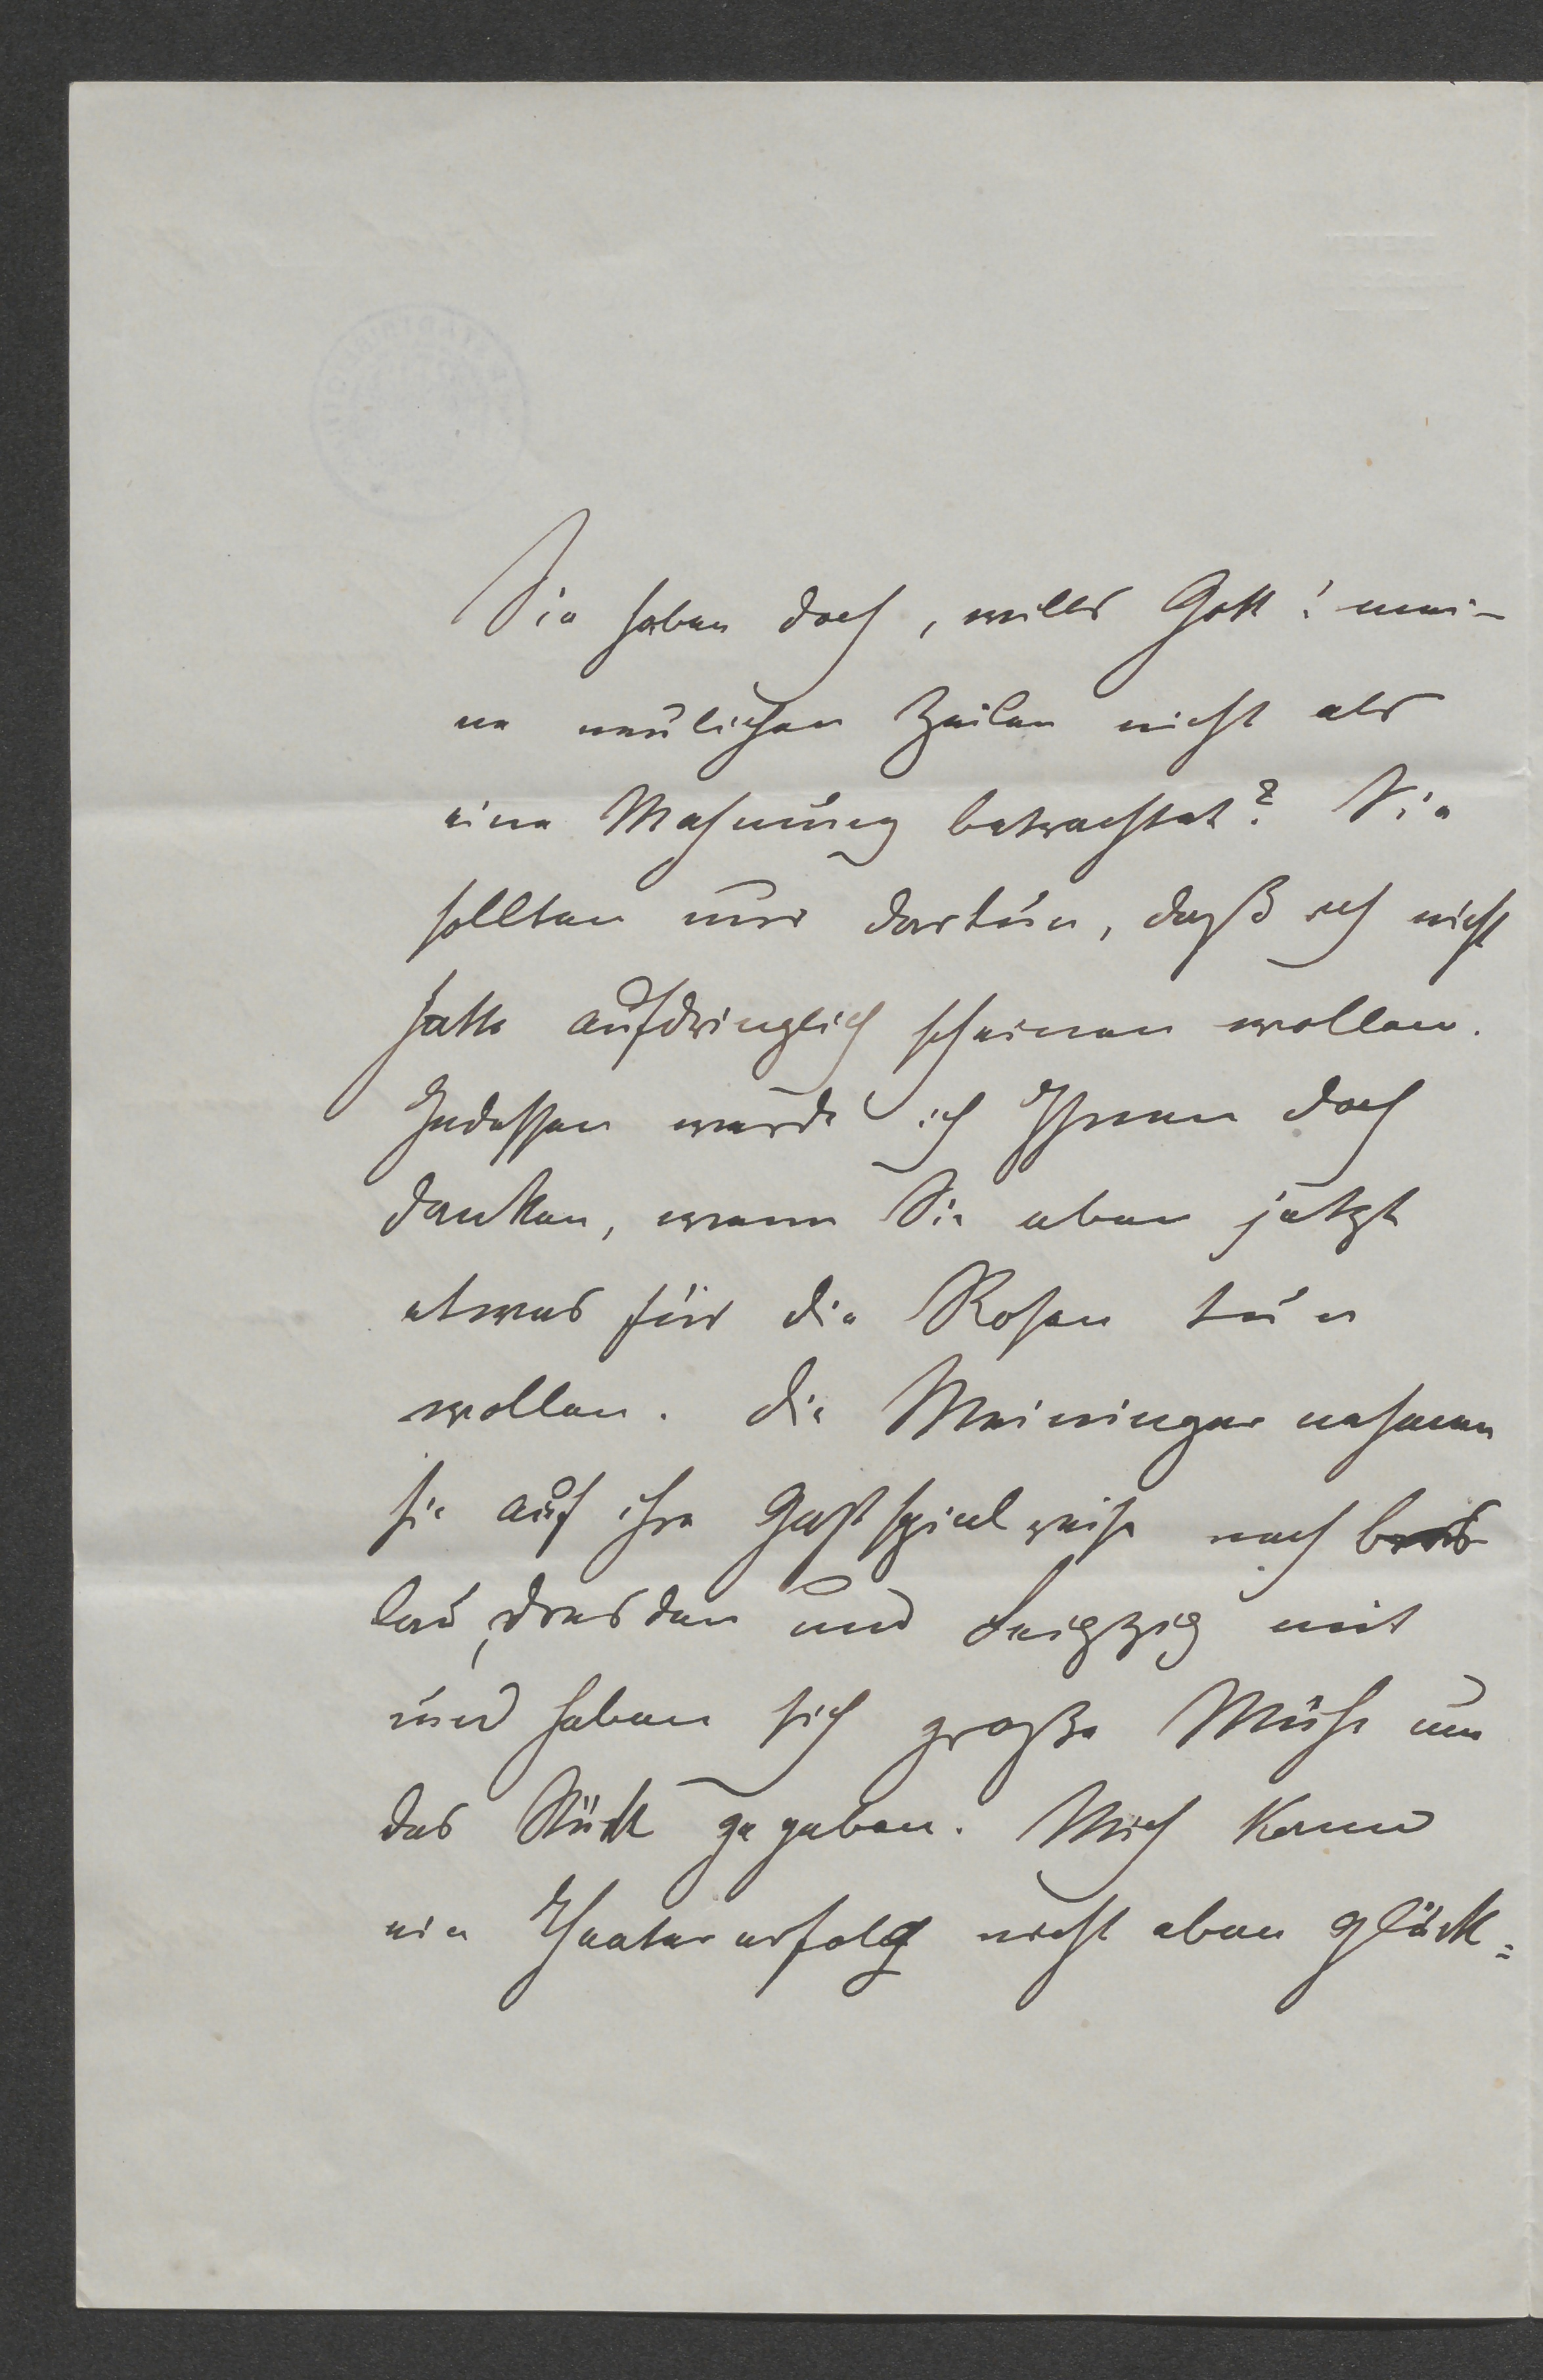 Sie haben doch, wills Gott! mei-
ne neulichen Zeilen nicht als
eine Mahnung betrachtet? Sie
sollten nur dartun, daß ich nicht
hatte aufdringlich scheinen wollen.
Indessen werde ich Ihnen doch
danken, wenn Sie eben jetzt
etwas für die Rosen tun
wollen. Die Meininger nahmen
sie auf ihre Gastspielreise nach Bres
lau, Dresden und Leipzig mit
und haben sich große Mühe um
das Stück gegeben. Mich kann
ein Theatererfolg nicht eben glück=